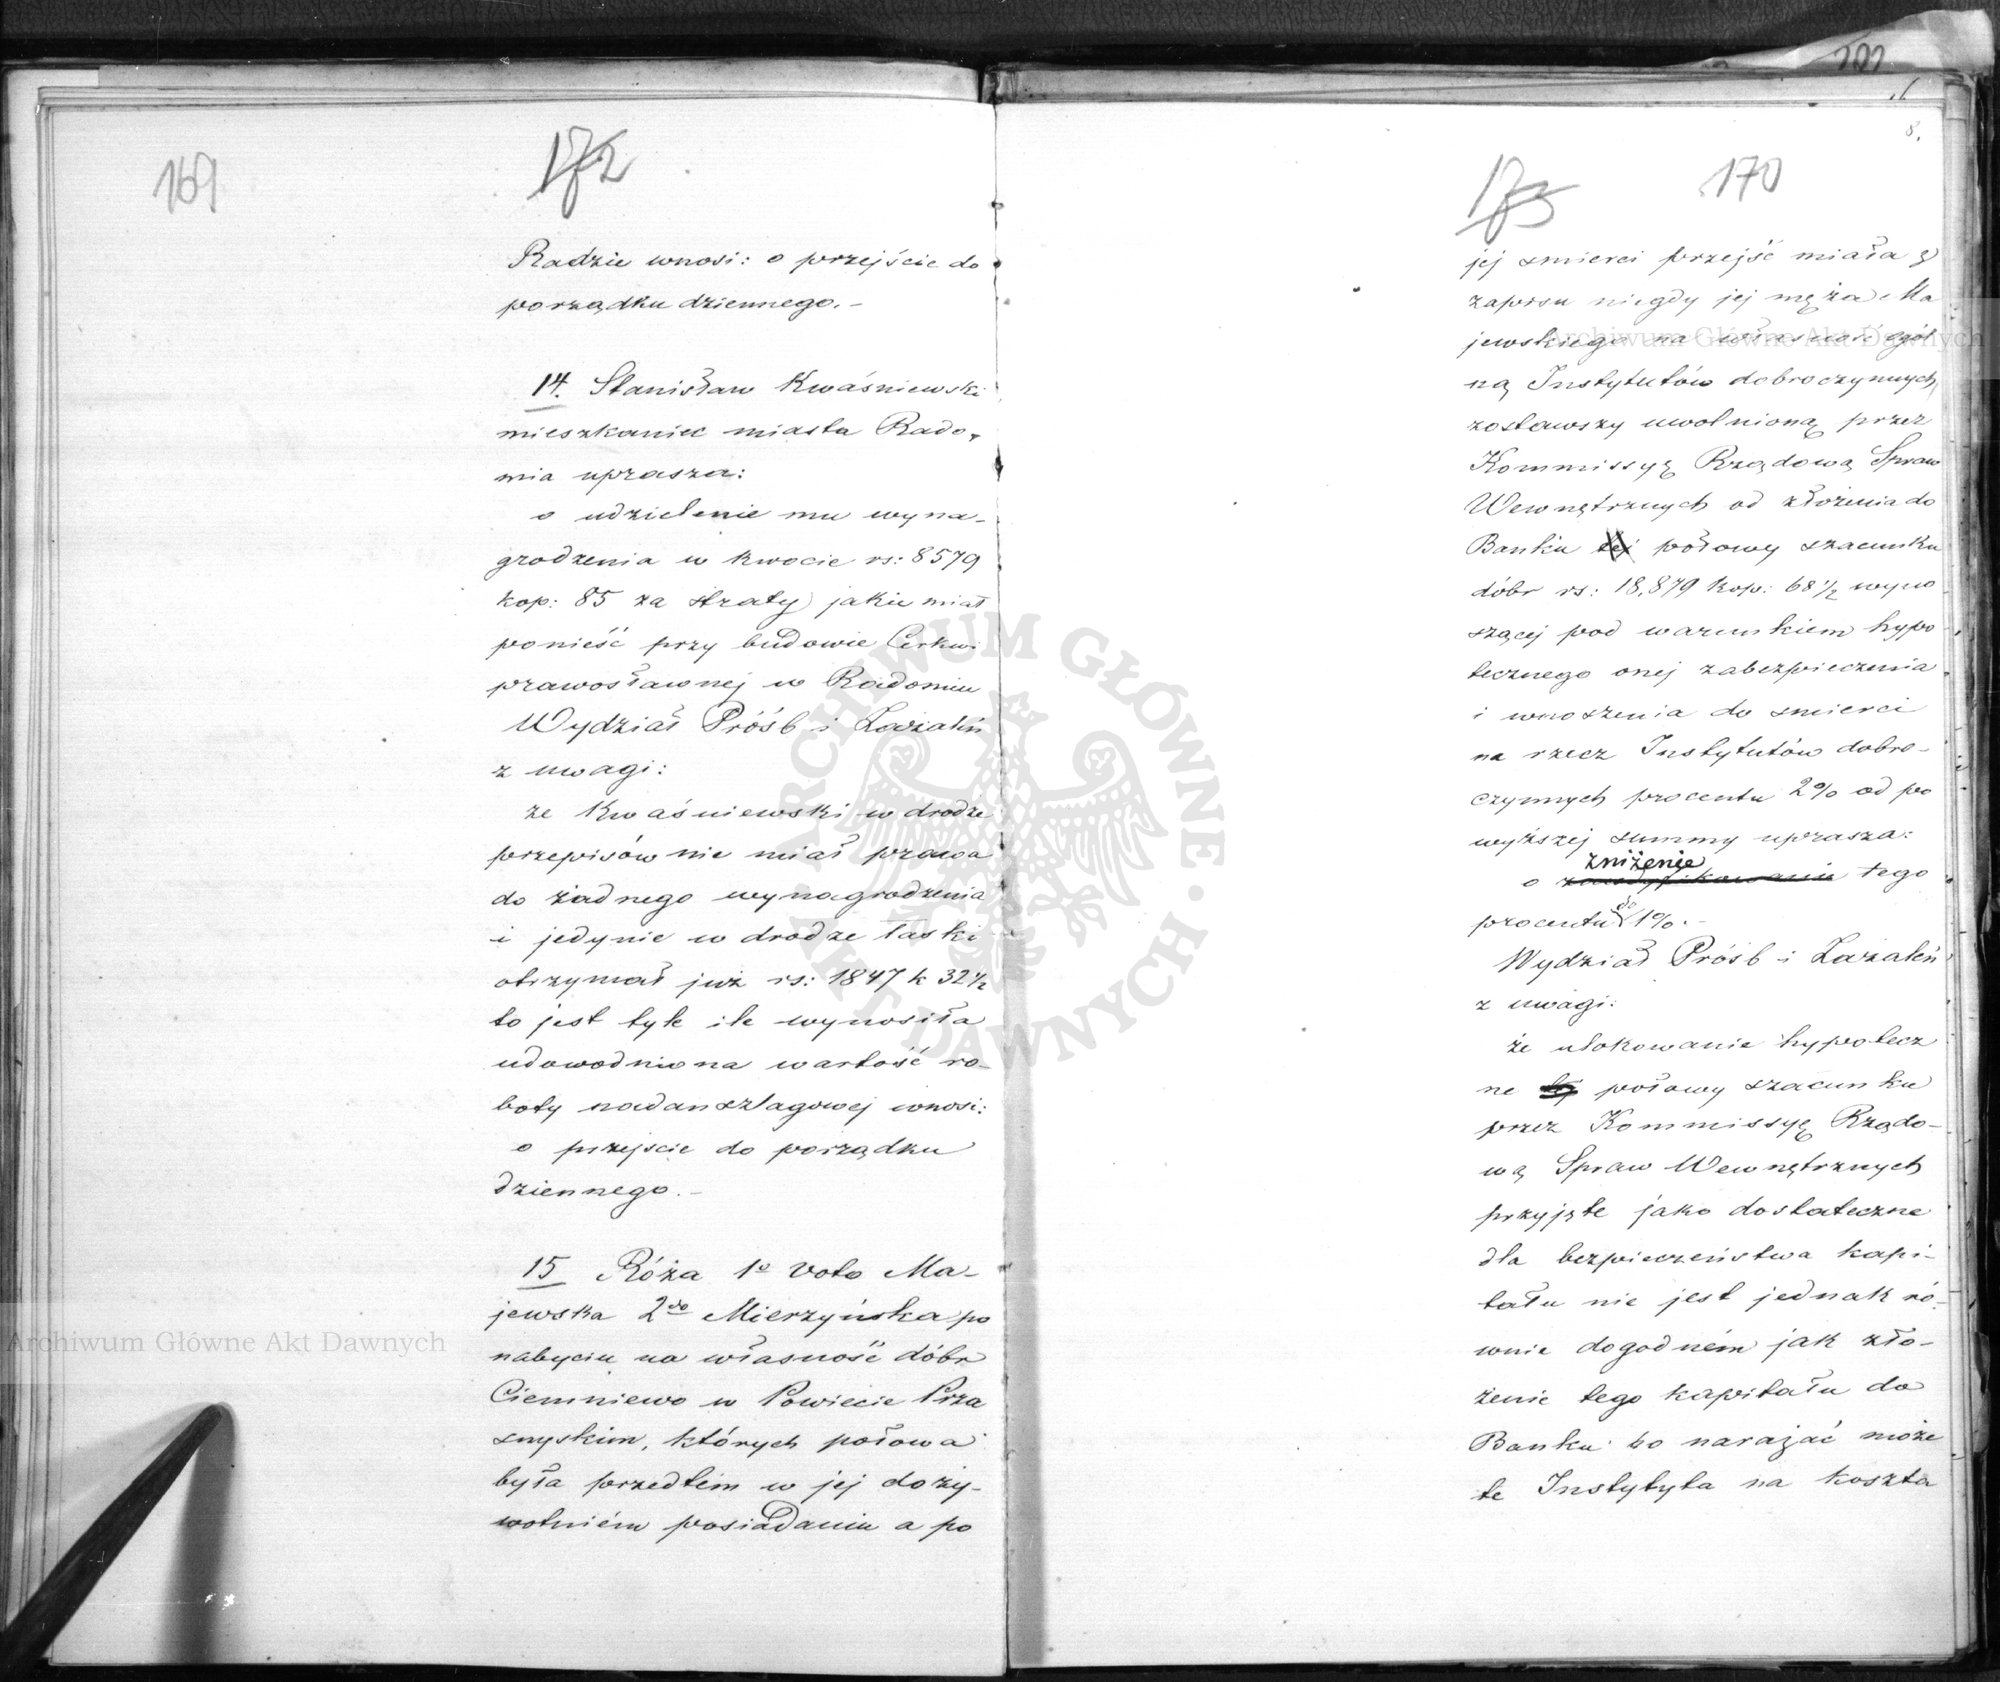 169
172
Radzie wnosi: o przejście do
porządku dziennego.-
14. Stanisław Kwaśniewski
mieszkaniec miasta Rado-
mia uprasza:
o udzielenie mu wyna-
grodzenia w kwocie rs: 8579
kop: 85 za straty jakie miał
ponieść przy budowie Cerkwi
prawosławnej w Radomiu
Wydział Próśb i Zażaleń
z uwagi:
że Kwaśniewski w drodze
przepisów nie miał prawa
do żadnego wynagrodzenia
i jedynie w drodze łaski
otrzymał już rs: 1847 k 32½
to jest tyle ile wynosiła
udowodniona wartość ro-
boty nadanszlagowej wnosi:
o przejście do porządku
dziennego.-
15 Róża 1o voto Ma-
jewska 2do Mierzyńska po
nabyciu na własność dóbr
Ciemniewo w Powiecie Prza
snyskim, których połowa
była przedtém w jej doży-
wotniém posiadaniu a po
Archiwum Główne Akt Dawnych
8.
173
170
jej śmierci przejść miała z
zapisu niegdy jej męża Ma
jewskiego na własność ogól
ną Instytutów dobroczynnych
zostawszy uwolnioną przez
Kommissyę Rządową Spraw
Wewnętrznych od złożenia do
Banku tej połowy szacunku
dóbr rs: 18,879 kop: 68½ wyno
szącej pod warunkiem hypo-
tecznego onej zabezpieczenia
i wnoszenia do śmierci
na rzecz Instytutów dobro-
czynnych procentu 2% od po
wyższej summy uprasza:
zniżenie
o tego
procentu do 1%.-
Wydział Próśb i Zażaleń
z uwagi:
że ulokowanie hypotecz
ne tej połowy szacunku
przez Kommissyę Rządo-
wą Spraw Wewnętrznych
przyjęte jako dostateczne
dla bezpieczeństwa kapi-
tału nie jest jednak ró-
wnie dogodném jak zło-
żenie tego kapitału do
Banku bo narażać może
te Instytuta na koszta
Archiwum Główne Akt Dawnych
ARCHIWUM GŁÓWNE · AKT DAWNYCH ·